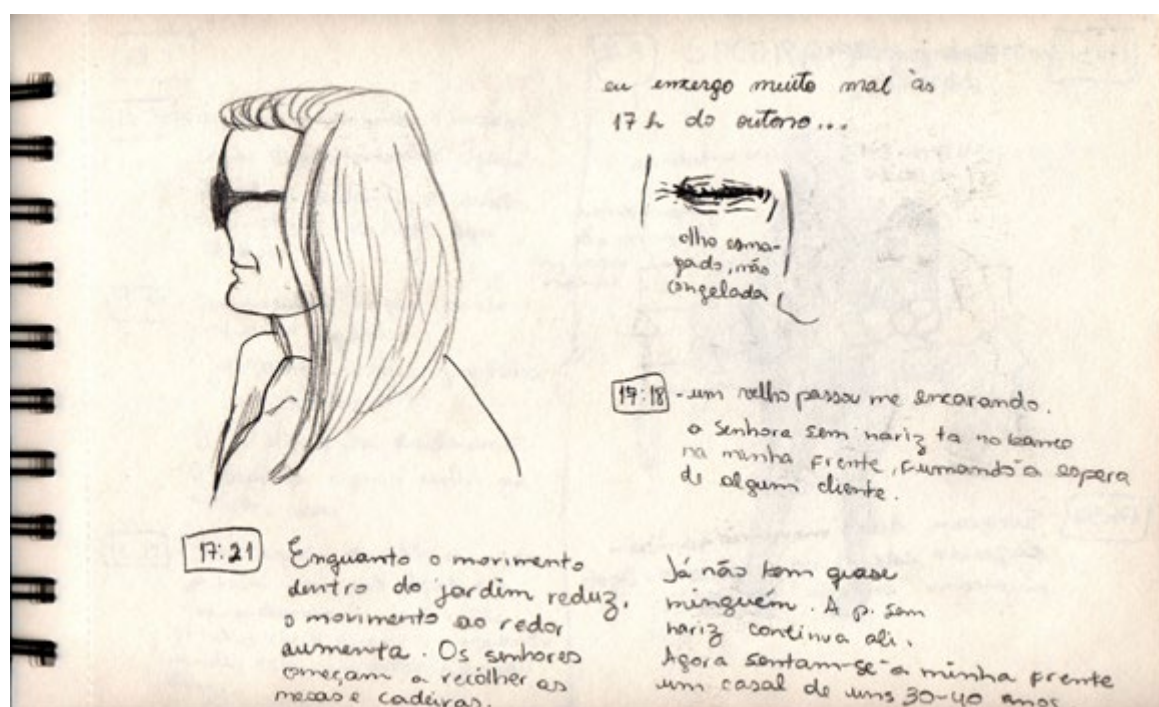 eu enxergo muito mal às
17 h do outono...
olho esma-
gado, não
congelada
17:18 - um velho passou me encarando.
a senhora sem nariz ta no banco
na minha frente, fumando à espera
de algum cliente.
17:21 Enquanto o movimento
dentro do jardim reduz,
o movimento ao redor
aumenta. Os senhores
começam a recolher as
mesas e cadeiras.
Já não tem quase
ninguém. A p. sem
nariz continua ali.
Agora sentam-se à minha frente
um casal de uns 30-40 anos